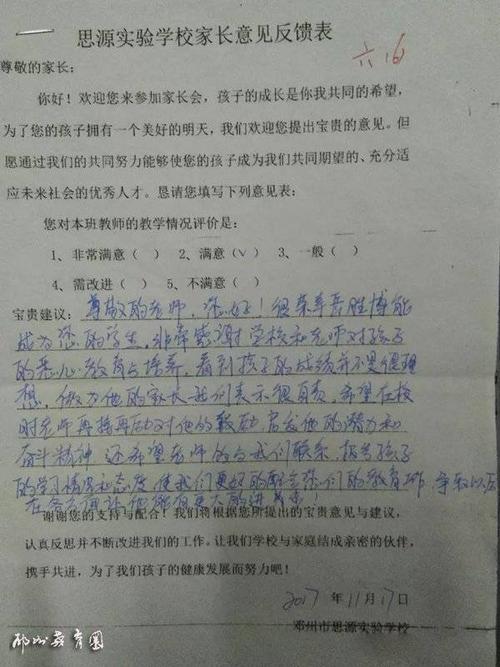 思源实验学校家长意见反馈表
六16
尊敬的家长：
你好！欢迎您来参加家长会，孩子的成长是你我共同的希望，
为了您的孩子拥有一个美好的明天，我们欢迎您提出宝贵的意见。但
愿通过我们的共同努力能够使您的孩子成为我们共同期望的、充分适
应未来社会的优秀人才。恳请您填写下列意见表：
您对本班教师的教学情况评价是：
1、非常满意（ ） 2、满意（√） 3、一般（ ）
4、需改进（ ） 5、不满意（ ）
宝贵建议：尊敬的老师，您好！很荣幸 胜博能
成为您的学生，非常感谢学校和老师对孩子
的悉心教育与培养，看到孩子的成绩并不是很理
想，做为他的家长我们表示很自责，希望在校
时老师再接再 对他的鼓励，启发他的潜力和
奋斗精神 还希望老师 与我们联系，报告孩子
的学习情况和态度使我们更好的配合你们的教育工作，争取以后
在各个 他能有更大的进步！
谢谢您的支持与配合！我们将根据您所提出的宝贵意见与建议，
认真反思并不断改进我们的工作。让我们学校与家庭结成亲密的伙伴，
携手共进，为了我们孩子的健康发展而努力吧！
2017 年 11 月 17 日
邓州市思源实验学校
邓州教育圈